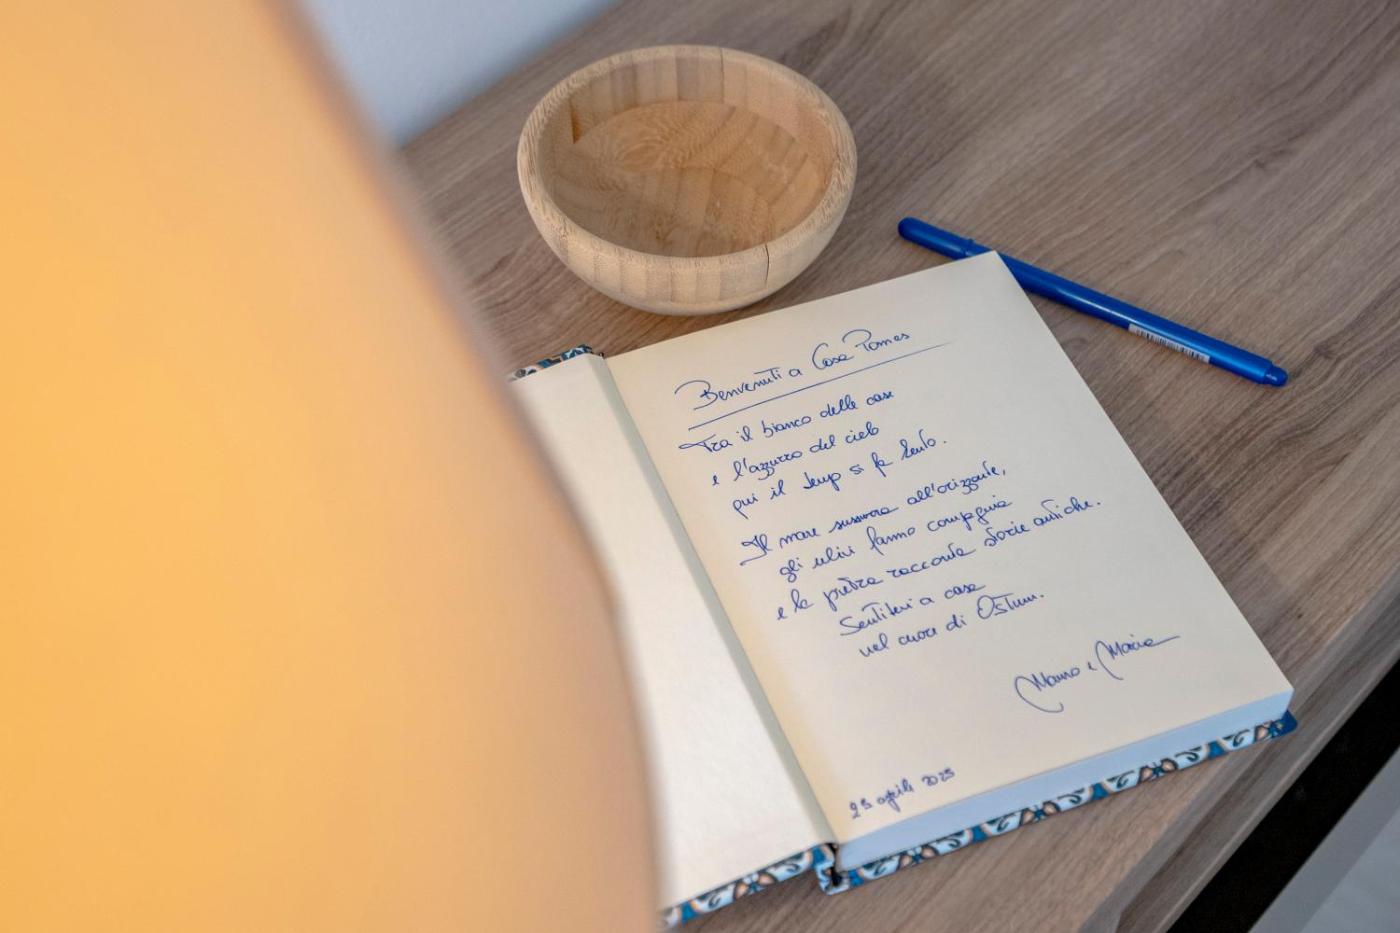 Benvenuti a Casa Pomes
Tra il bianco delle case
e l'azzurro del cielo
qui il tempo si fa lento.
Il mare sussurra all'orizzonte,
gli ulivi fanno compagnia
e la pietra racconta storie antiche.
Sentitevi a casa
nel cuore di Ostuni.
e Maria
aprile 2025